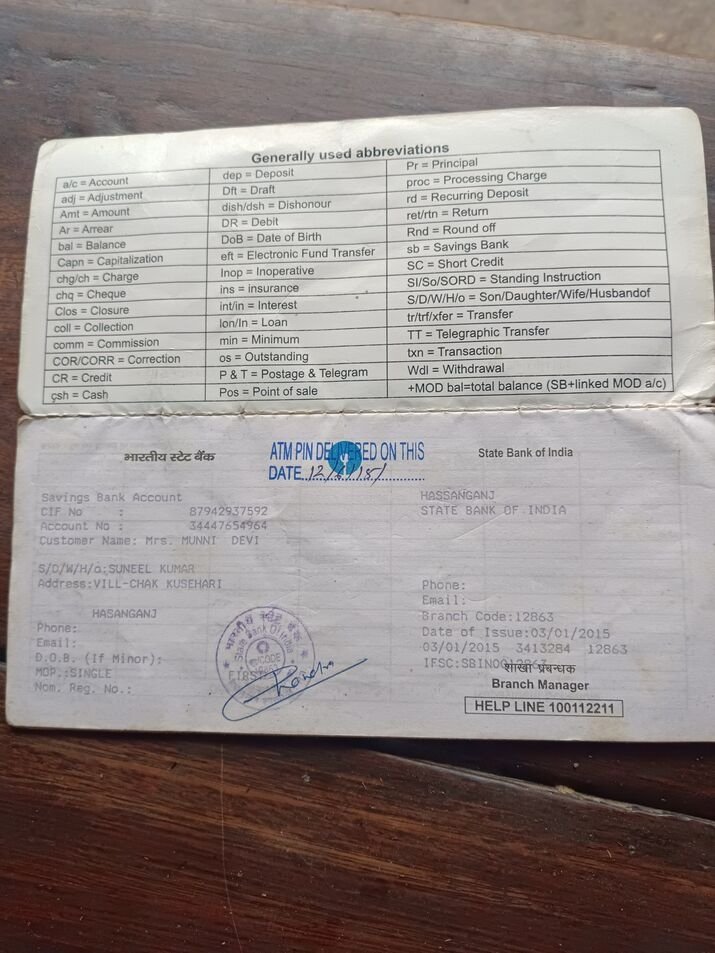 Generally used abbreviations
a/c = Account
adj = Adjustment
Amt = Amount
Ar = Arrear
bal = Balance
Capn = Capitalization
chg/ch = Charge
chq = Cheque
Clos = Closure
coll = Collection
comm = Commission
COR/CORR = Correction
CR = Credit
çsh = Cash
dep = Deposit
Dft = Draft
dish/dsh = Dishonour
DR = Debit
DoB = Date of Birth
eft = Electronic Fund Transfer
Inop = Inoperative
ins = insurance
int/in = Interest
lon/In = Loan
min = Minimum
os = Outstanding
P & T = Postage & Telegram
Pos = Point of sale
Pr = Principal
proc = Processing Charge
rd = Recurring Deposit
ret/rtn = Return
Rnd = Round off
sb = Savings Bank
SC = Short Credit
SI/So/SORD = Standing Instruction
S/D/W/H/o = Son/Daughter/Wife/Husbandof
tr/trf/xfer = Transfer
TT = Telegraphic Transfer
txn = Transaction
Wdl = Withdrawal
+MOD bal=total balance (SB+linked MOD a/c)
भारतीय स्टेट बैंक
ATM PIN DELIVERED ON THIS
DATE
State Bank of India
Savings Bank Account
CIF No : 87942937592
Account No : 34447654964
Customer Name: Mrs. MUNNI DEVI
S/D/W/H/o:SUNEEL KUMAR
Address:VILL-CHAK KUSEHARI
HASANGANJ
Phone:
Email:
D.O.B. (If Minor):
MOP.:SINGLE
Nom. Reg. No.:
भारतीय स्टेट बैंक
State Bank Of India
CODE
HASSANGANJ
STATE BANK OF INDIA
Phone:
Email:
Branch Code:12863
Date of Issue:03/01/2015
03/01/2015 3413284 12863
IFSC:SBIN0012863
शाखा प्रबन्धक
Branch Manager
HELP LINE 100112211